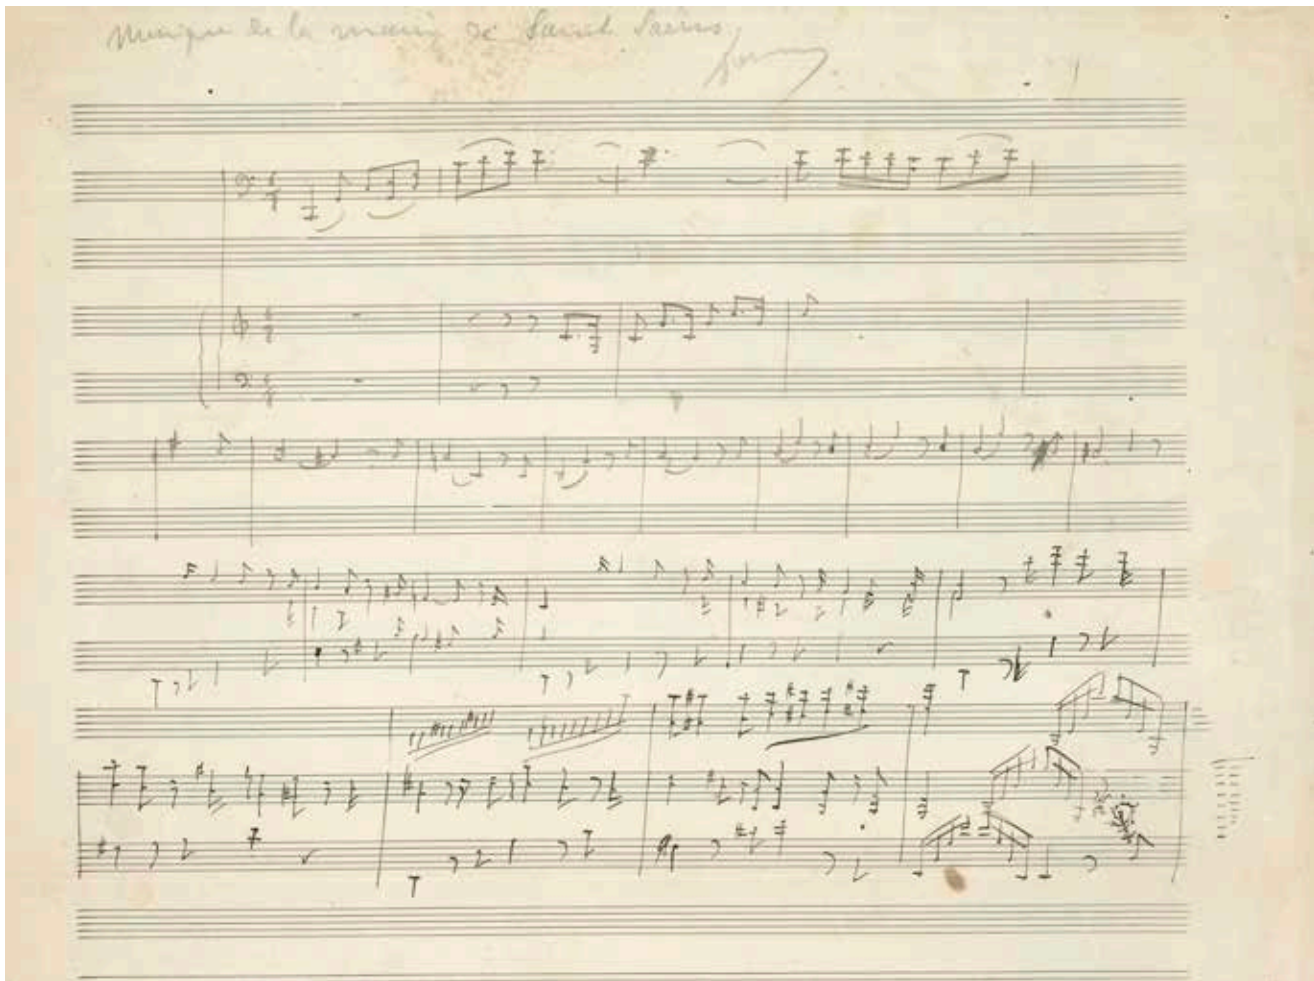 Musique de la main de Saint Saëns